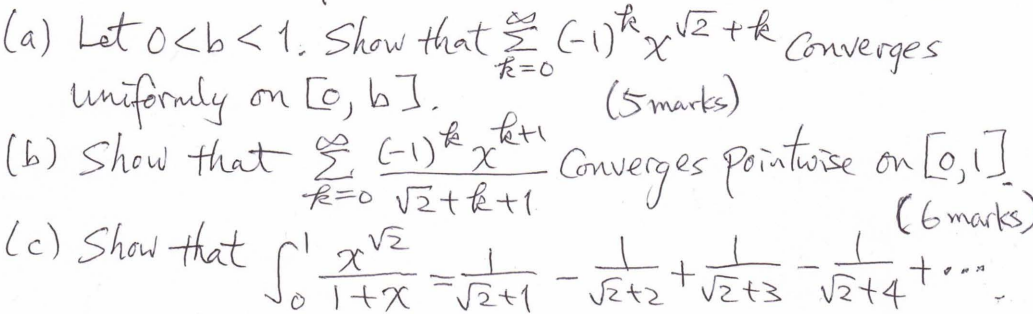 (a) Let 0<b<1. Show that ∑_{k=0}^{∞} (-1)^k x^{√2+k} Converges
uniformly on [0, b]. (5 marks)
(b) Show that ∑_{k=0}^{∞} \frac{(-1)^k x^{k+1}}{√2+k+1} Converges pointwise on [0,1]
(6 marks)
(c) Show that ∫_0^1 \frac{x^{√2}}{1+x} = \frac{1}{√2+1} - \frac{1}{√2+2} + \frac{1}{√2+3} - \frac{1}{√2+4} + ....